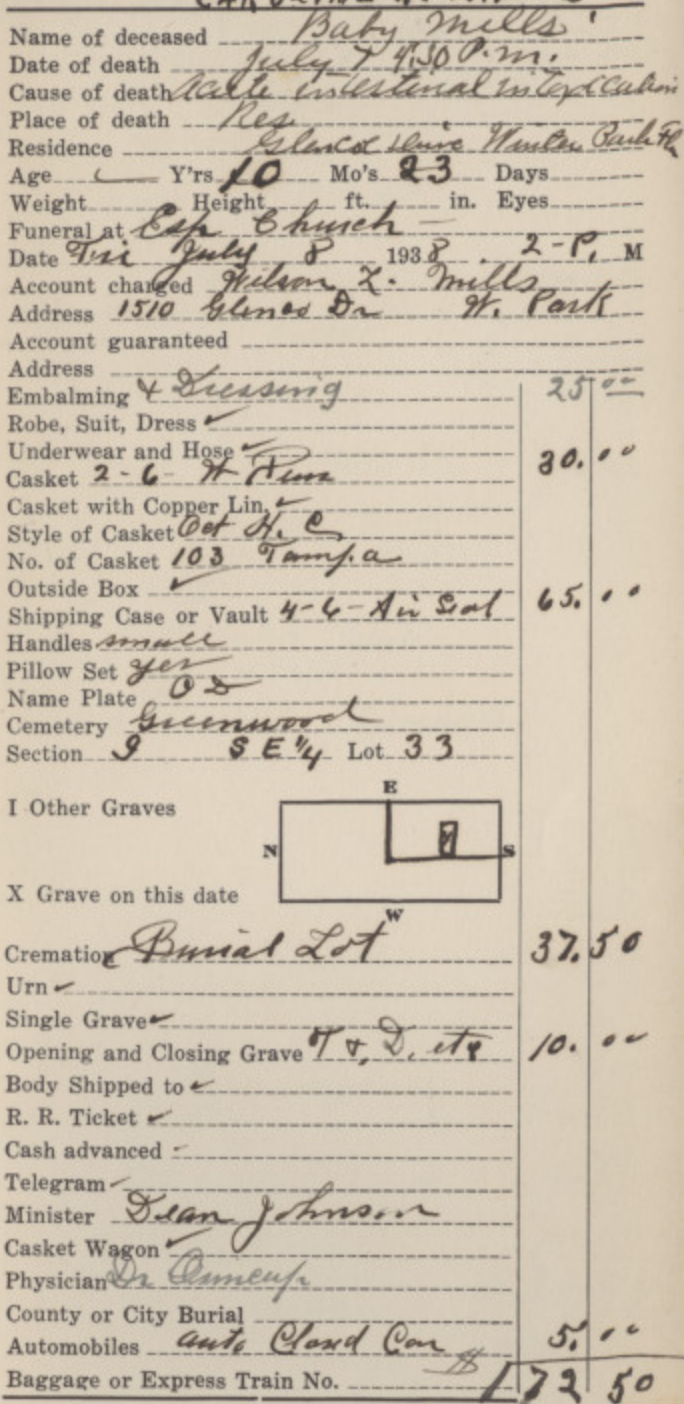 Name of deceased Baby Mills
Date of death July 7 4:30 P.m.
Cause of death Acute intestinal intoxication
Place of death Res
Residence Glencoe Drive Winter Park Fla
Age Y'rs 10 Mo's 23 Days
Weight Height ft. in. Eyes
Funeral at Esp Church
Date Fri July 8 1938. 2-P. M
Account charged Wilson L. Mills
Address 1510 Glencoe Dr W. Park
Account guaranteed
Address
Embalming & Dressing 25 00
Robe, Suit, Dress ✓
Underwear and Hose ✓
Casket 2-6- W 30. 00
Casket with Copper Lin. ✓
Style of Casket Oct H. C.
No. of Casket 103 Tampa
Outside Box ✓
Shipping Case or Vault 4-6-Air Seal 65. 00
Handles small
Pillow Set yes
Name Plate O D
Cemetery Greenwood
Section 9 S E 1/4 Lot 33
E
I Other Graves
N S
X Grave on this date
W
Cremation Burial Lot 37. 50
Urn ✓
Single Grave ✓
Opening and Closing Grave T &, D. etc 10. 00
Body Shipped to ✓
R. R. Ticket ✓
Cash advanced -
Telegram ✓
Minister Dean Johnson
Casket Wagon ✓
Physician Dr
County or City Burial
Automobiles auto Closed Car 5. 00
Baggage or Express Train No. $172 50